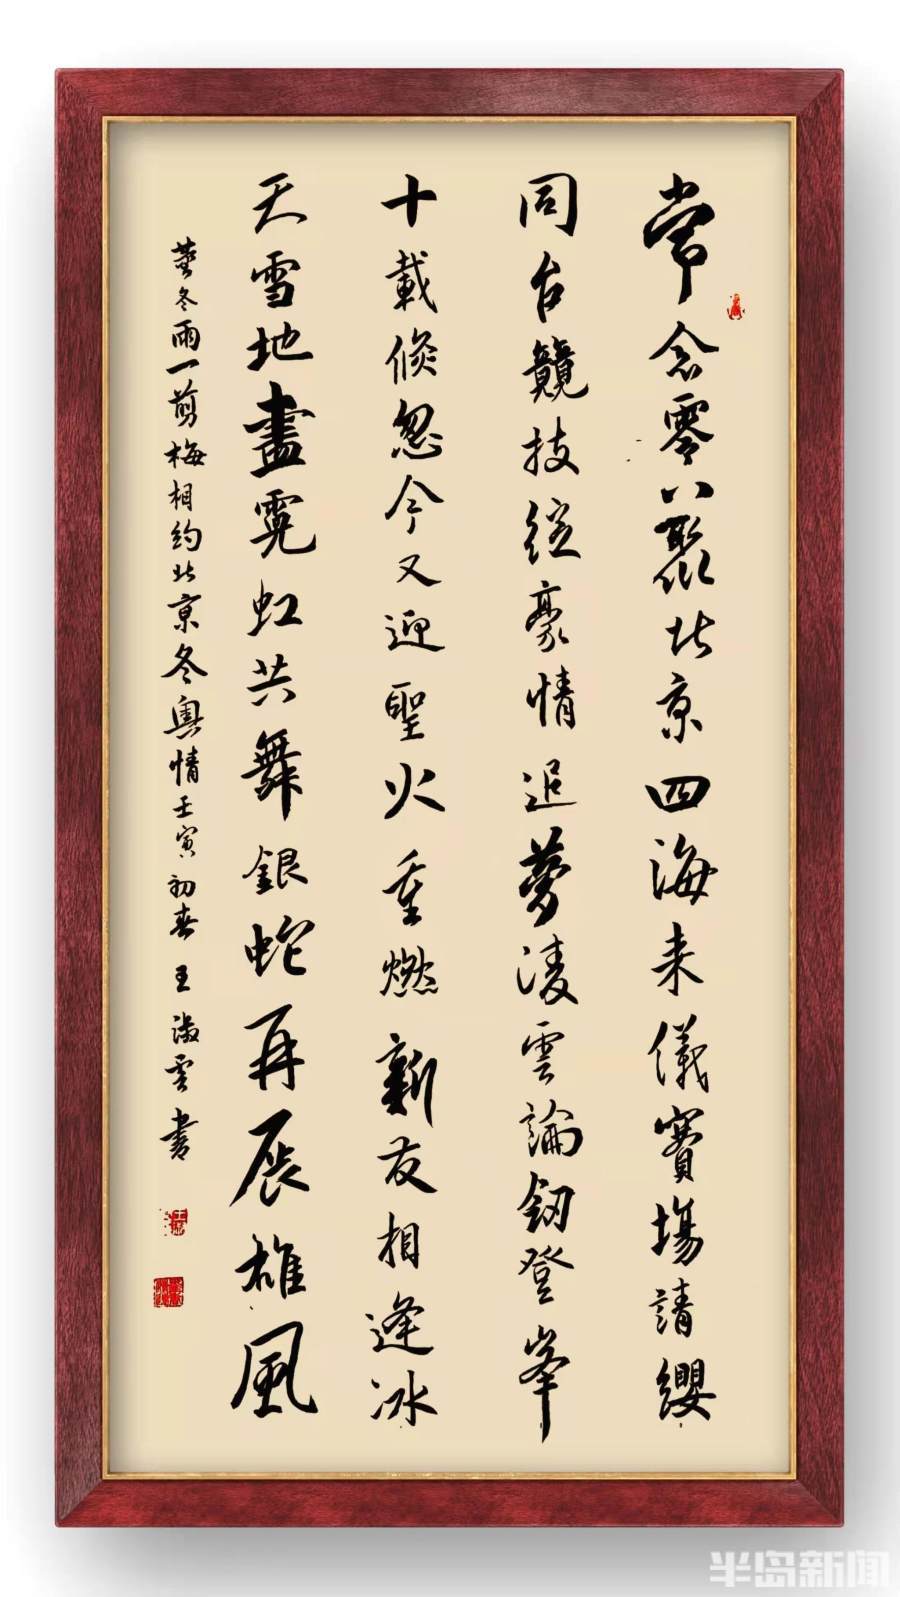 常念零八聚北京四海来儀賽場請纓
同台競技綻豪情追夢淩雲論釼登峯
十載倏忽今又迎聖火重燃新友相逢冰
天雪地盡霓虹共舞銀蛇再展雄風
董冬雨一剪梅相約北京冬奥情壬寅初春王淑雲書
半岛新闻